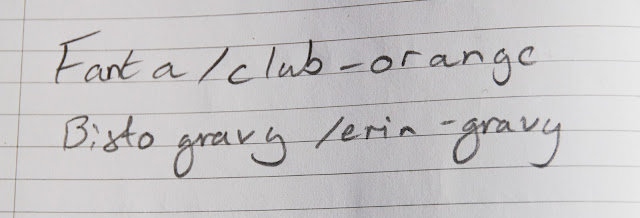 Fanta/club-orange
Bisto gravy/erin-gravy